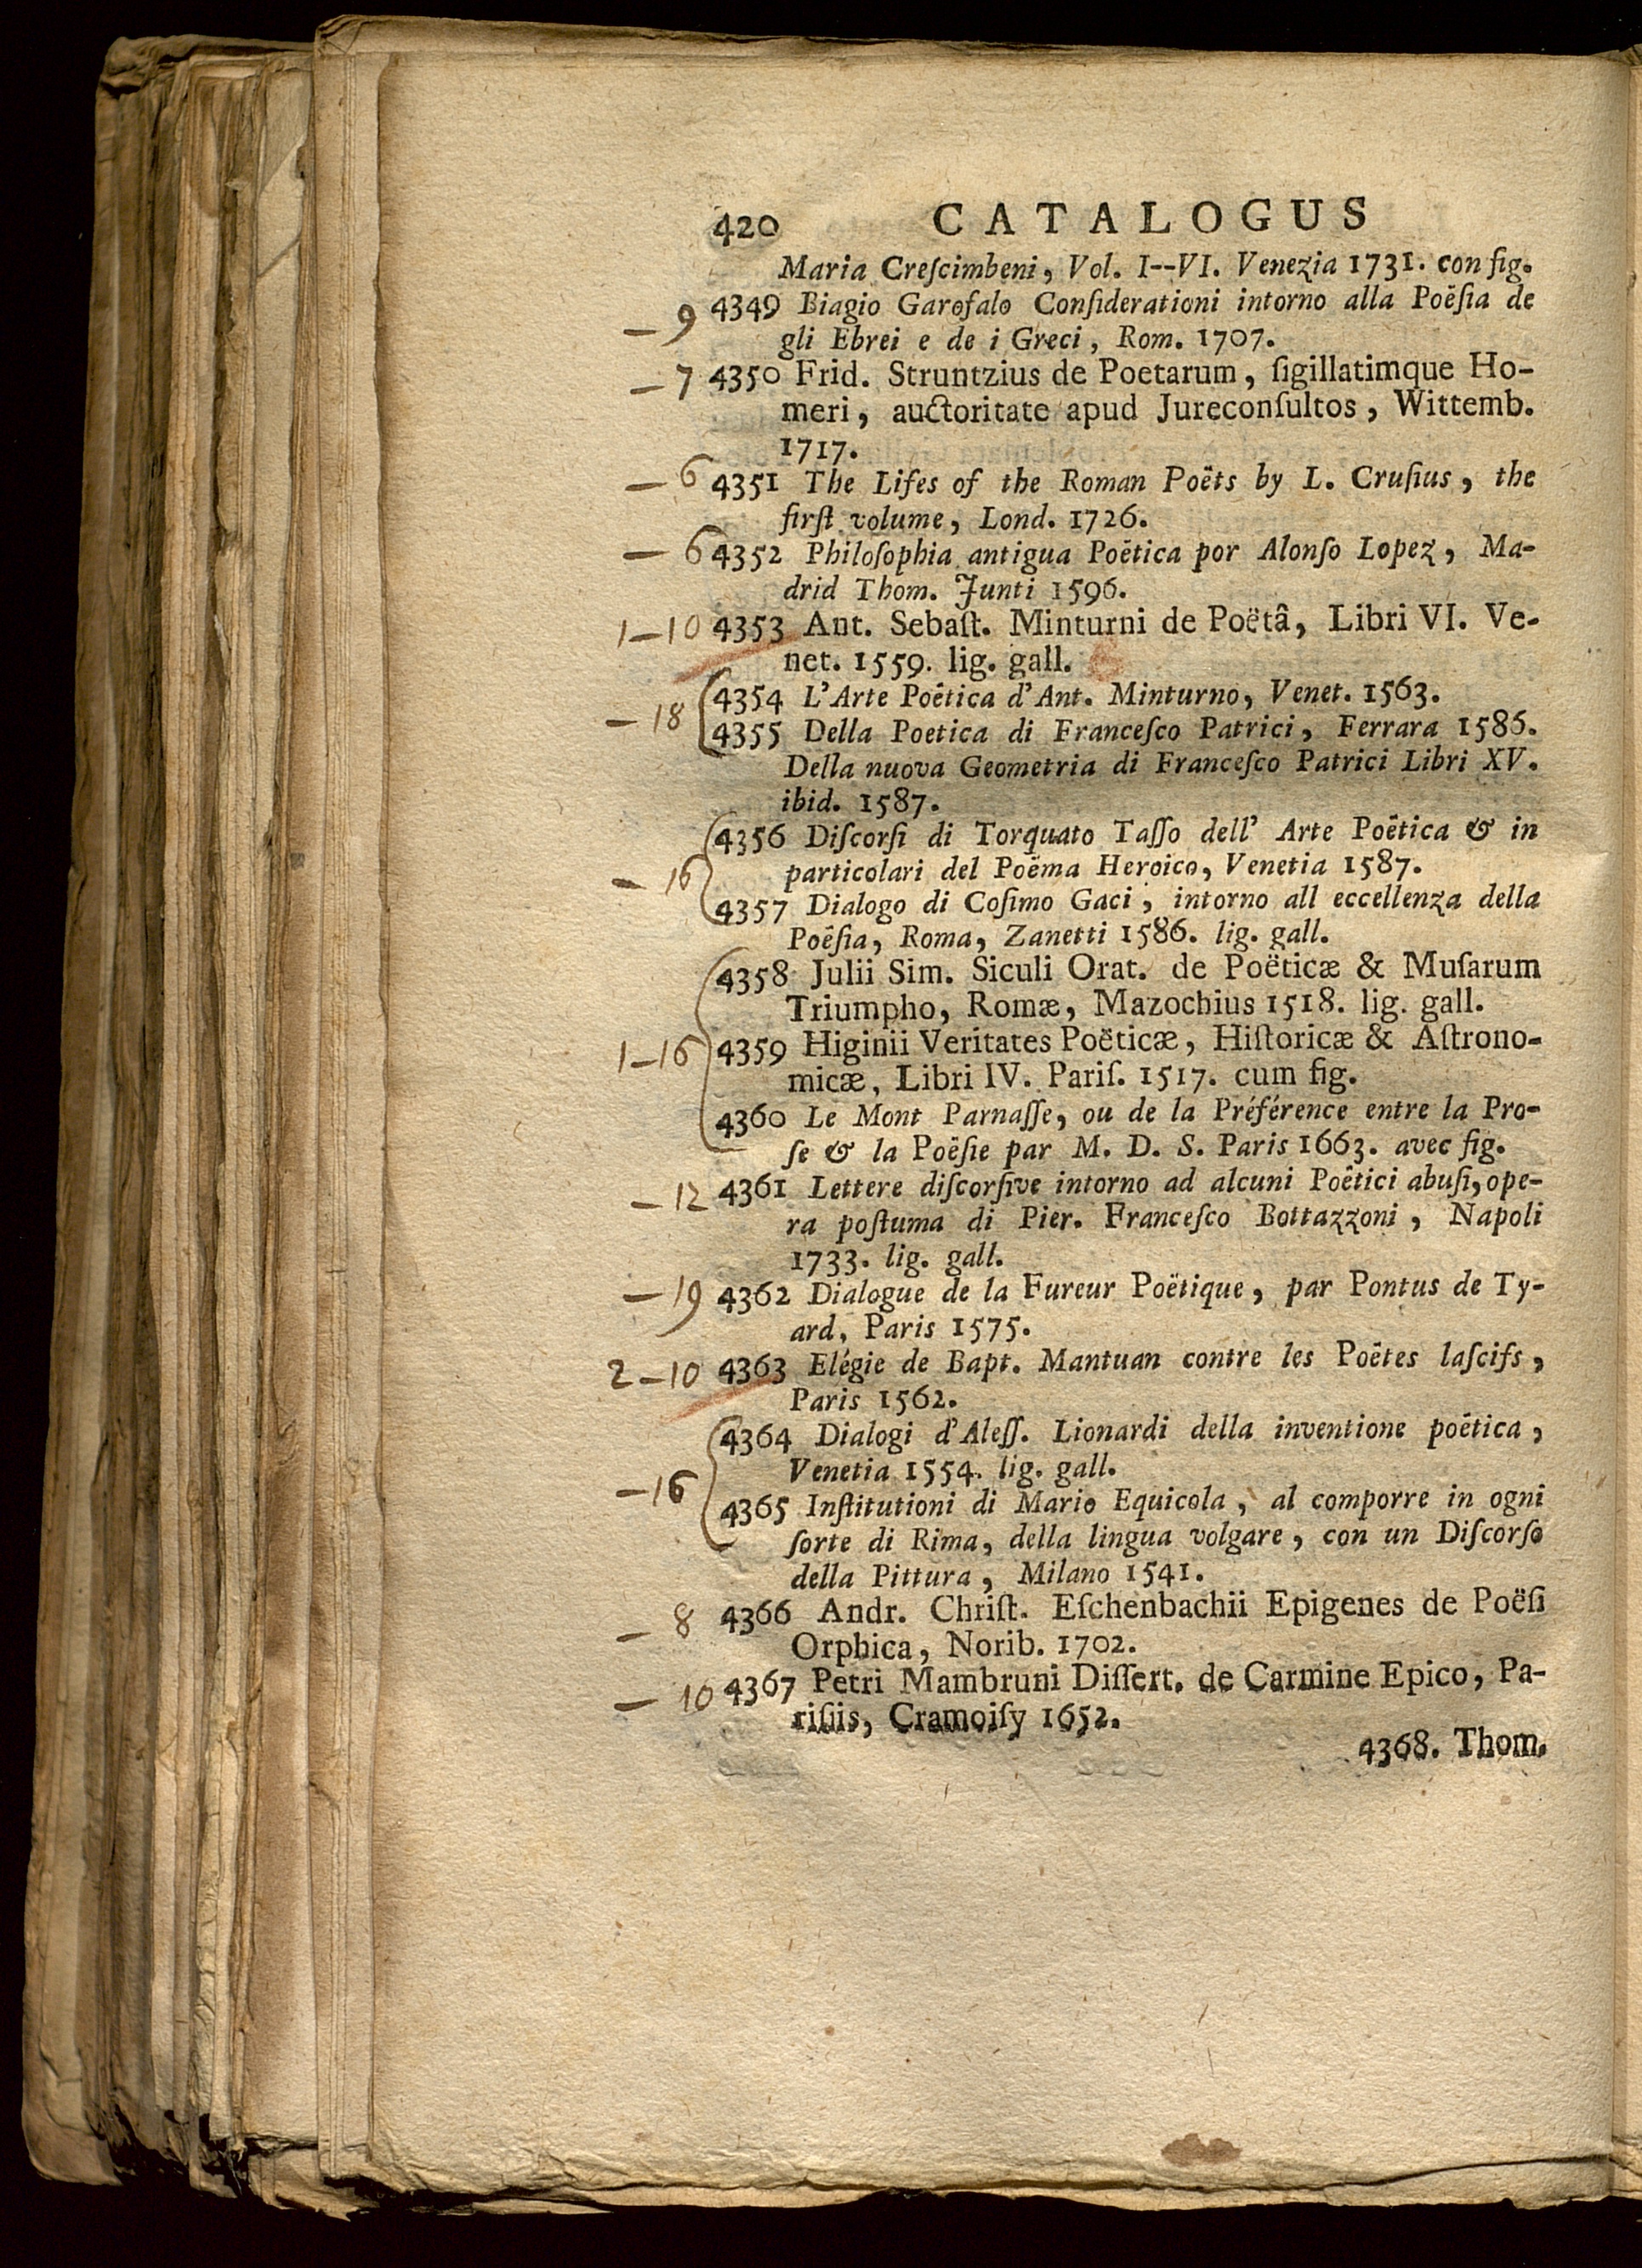 420 CATALOGUS
Maria Creſcimbeni, Vol. I--VI. Venezia 1731. con fig.
— 9 4349 Biagio Garofalo Conſiderationi intorno alla Poëſia de
gli Ebrei e de i Greci, Rom. 1707.
— 7 4350 Frid. Struntzius de Poetarum, ſigillatimque Ho-
meri, auctoritate apud Jureconſultos, Wittemb.
1717.
— 6 4351 The Lifes of the Roman Poëts by L. Cruſius, the
firſt volume, Lond. 1726.
— 6 4352 Philoſophia antigua Poëtica por Alonſo Lopez, Ma-
drid Thom. Junti 1596.
1—10 4353 Ant. Sebaſt. Minturni de Poëtâ, Libri VI. Ve-
net. 1559. lig. gall.
4354 L'Arte Poëtica d'Ant. Minturno, Venet. 1563.
— 18 4355 Della Poetica di Franceſco Patrici, Ferrara 1586.
Della nuova Geometria di Franceſco Patrici Libri XV.
ibid. 1587.
4356 Diſcorſi di Torquato Taſſo dell' Arte Poëtica & in
— 16 particolari del Poëma Heroico, Venetia 1587.
4357 Dialogo di Coſimo Gaci, intorno all eccellenza della
Poëſia, Roma, Zanetti 1586. lig. gall.
4358 Julii Sim. Siculi Orat. de Poëticæ & Muſarum
Triumpho, Romæ, Mazochius 1518. lig. gall.
1—16 4359 Higinii Veritates Poëticæ, Hiſtoricæ & Aſtrono-
micæ, Libri IV. Pariſ. 1517. cum fig.
4360 Le Mont Parnaſſe, ou de la Préférence entre la Pro-
ſe & la Poëſie par M. D. S. Paris 1663. avec fig.
— 12 4361 Lettere diſcorſive intorno ad alcuni Poëtici abuſi, ope-
ra poſtuma di Pier. Franceſco Bottazzoni, Napoli
1733. lig. gall.
— 19 4362 Dialogue de la Fureur Poëtique, par Pontus de Ty-
ard, Paris 1575.
2—10 4363 Elégie de Bapt. Mantuan contre les Poëtes laſcifs,
Paris 1562.
4364 Dialogi d'Aleſſ. Lionardi della inventione poëtica,
Venetia 1554. lig. gall.
— 16 4365 Inſtitutioni di Mario Equicola, al comporre in ogni
ſorte di Rima, della lingua volgare, con un Diſcorſo
della Pittura, Milano 1541.
— 8 4366 Andr. Chriſt. Eſchenbachii Epigenes de Poëſi
Orphica, Norib. 1702.
— 10 4367 Petri Mambruni Diſſert. de Carmine Epico, Pa-
riſiis, Cramoiſy 1652.
4368. Thom.